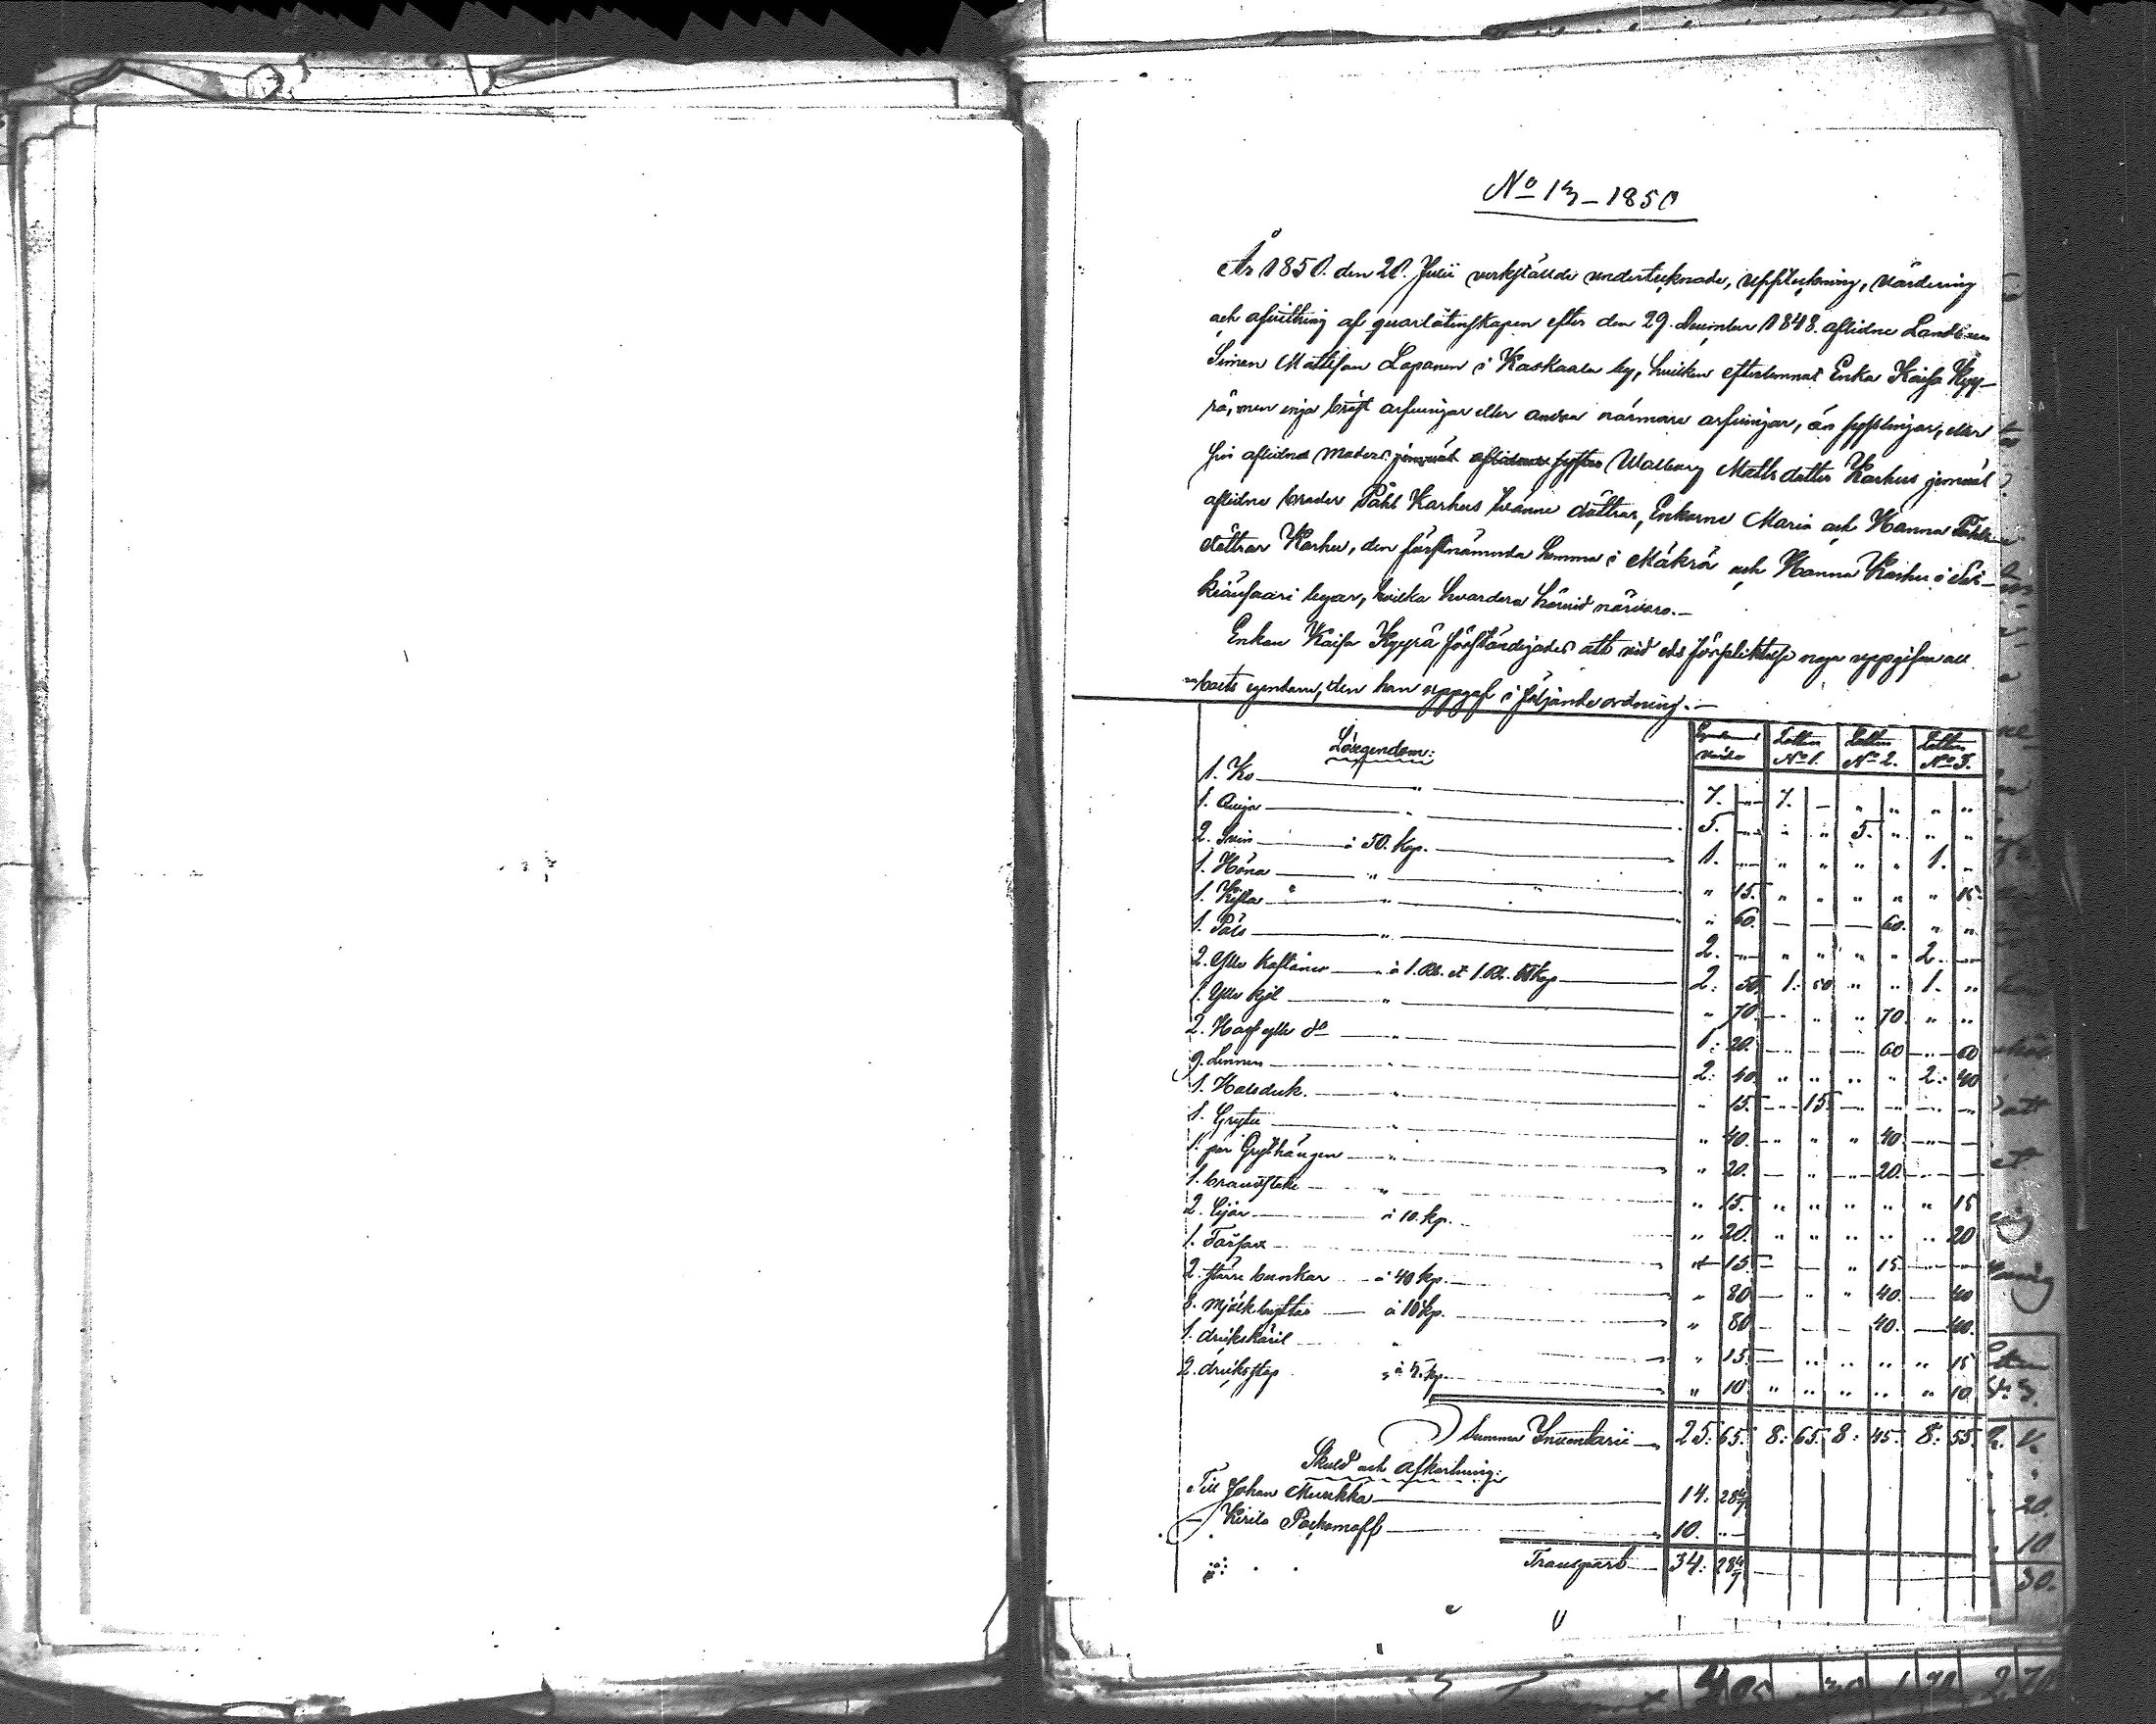 No 13 – 1850
År 1850. den 20. Julii verkställde undertecknade, uppteckning, värdering
och afvittring af quarlåtenskapen efter den 29. December 1848. aflidne Landbon
Simon Mattsson Lapanen i Kaskaala by, hvilken efterlemnat Enka Kaisa Kyy-
rä, men inga bröst arfvingar eller andra närmare arfvingar, än sysslingar, eller
sin aflidna moders jemväl aflidne syster Walborg Matts dotter Karhus jemväl
aflidne broder Påhl Karhus tvänne döttrar, Enkorne Maria och Hanna Påhls
döttrar Karhu, den förstnämnda hemma i Mäkrä och Hanna Karhu i
kiänsaari byar, hvilka hvardera härvid närvaro. –
Enkan Kaisa Kyyrä förständigades att vid eds förpliktelse noga uppgifva all
boets egendom, den hon uppgaf i följande ordning. –
Lösegendom: Egendomens värde Lotten No 1. Lotten No 2. Lotten No 3.
1. Ko " 7. – 7. – " " " "
1. Quiga " 5. – " " 5. " " "
2. Svin à 50. kop. 1. – " " " " 1. "
1. Höna " " 15. " " " " " 15.
1. Kista " " 60. – – – 60. " "
1. Päls " 2. – " " " " 2. –
2. Ylle kaftaner à 1. Rb. et 1. Rb. 50 kop 2: 50. 1: 50 " " 1. "
1. Ylle kjol " " 70. – " " 70. " "
2. Half ylle do " 1: 20. – – – 60 – 60
9. Linnen " 2: 40. " " " " 2: 40
1. Halsduk. " " 15. – 15. – – – –
1. Gryta " " 40. – " " 40. – –
1. par Grythängen " " 20. – " – 20. – –
1. brandstake " " 15. " " " " " 15
2. Lijor à 10. kp. " 20. " " " " " 20
1. Fårsax " 15 – – " 15 – –
2. större bunkar à 40 kp. " 80 – " " 40. – 40
8. mjölk byttor à 10 kp. " 80 – – – 40. – 40.
1. drickskäril " " 15 – " " " " 15
2. dricksstop à 5. kp. " 10 " " " " " 10
Summa Inventarii 25: 65. 8: 65. 8: 45. 8: 55.
Skuld och afkortning:
Till Johan Murkka 14: 28 4/7
– Kirila Pachomoff 10. –
Transport 34: 28 4/7